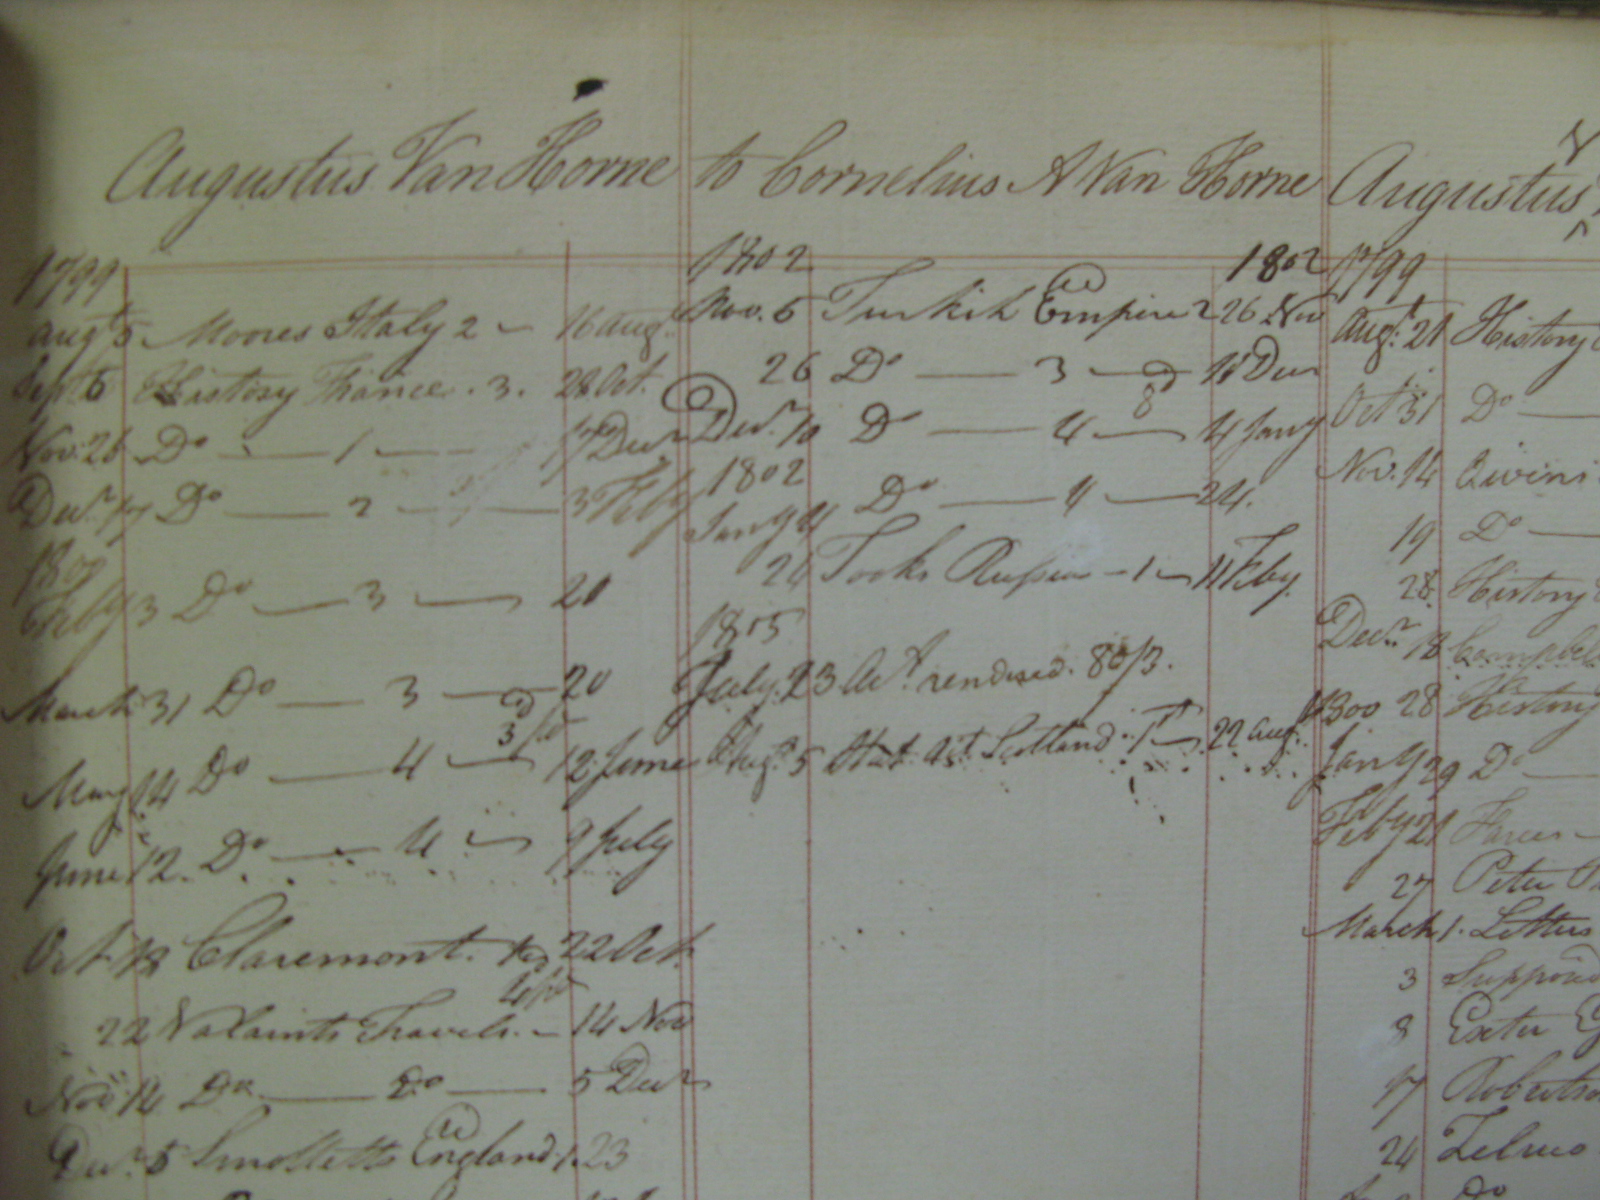 Augustus Van Horne to Cornelius A Van Horne
1799
Augt 5 Moores Italy 2 — 16 Aug.
Sept 6 History France . 3 . 28 Oct.
Nov. 26 Do — 1 — 17 Decr
Decr. 17 Do — 2 — 3 Feby
1800
Feby 3 Do — 3 — 20
March 31 Do — 3 — 20
May 14 Do — 4 — 12 June
June 12. Do — 4 — 9 July
Oct. 18 Claremont. 22 Oct.
22 Valiants Travels. — 14 Nov
Nov 14 Do — Do — 5 Decr
Decr. 5 Smolletts England . 1. 23
1802 1802
Nov. 6 Turkish Empire 2 26 Nov
26 Do — 3 — 10 Decr
Decr. 10 Do — 4 — 4 Jany
1802
Jany 4 Do — 4 — 24.
24 Tooks Russia — 1 — 11 Feby.
1805
July. 23 Act. rendered. 80/3.
Aug. 5 Stat. Act. Scotland . 1 — 22 Aug.
Augustus
1799
Augt. 21 History
Oct 31 Do —
Nov. 14
19 Do —
28. History
Decr. 18
1800 28 History
Jany 29 Do —
Feby 21
27 Peter
March 1. Letters
3
8 Exeter
17 Robertso
24 Zeluco
Do